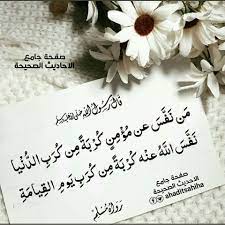 صفحة جامع
الأحاديث الصحيحة
قال رسول الله ﷺ
مَن نَفَّسَ عن مُؤْمِنٍ كُرْبَةً مِن كُرَبِ الدُّنْيَا
نَفَّسَ اللَّهُ عنْه كُرْبَةً مِن كُرَبِ يَومِ القِيَامَةِ
صفحة جامع
الأحاديث الصحيحة
@ahaditsahiha
رواه مسلم